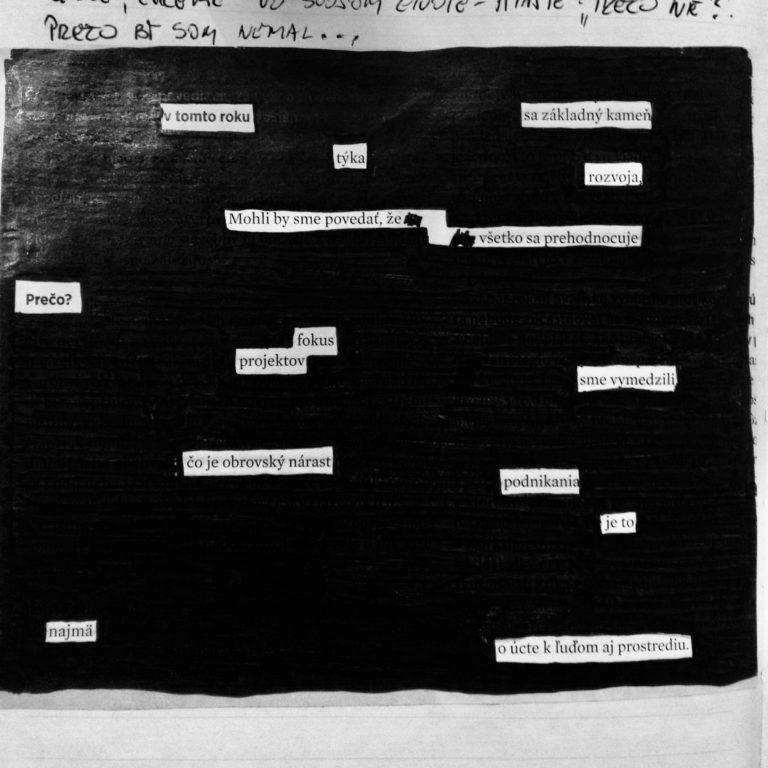 VO SVOJOM ŽIVOTE -
PREČO BY SOM NEMAL...,
v tomto roku
sa základný kameň
týka
rozvoja,
Mohli by sme povedať, že
všetko sa prehodnocuje
Prečo?
fokus
projektov
sme vymedzili
čo je obrovský nárast
podnikania
je to
najmä
o úcte k ľuďom aj prostrediu.